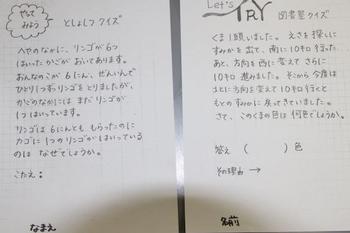 やって
みよう
としょしつ クイズ
へやのなかに、リンゴが6つ
はいった かごが おいてあります。
おんなのこが 6にん、ぜんいんで
ひとり1つずつ リンゴを とりましたが、
かごのなかには まだ リンゴが
1つ はいっています。
リンゴは 6にんとも もらったのに
カゴに 1つの リンゴが はいっている
のは なぜでしょうか。
こたえ：
なまえ
Let's TRY
図書室クイズ
くま1頭いました。えさを探しに
すみかを出て、南に10キロ行った
あと、方向を西に変えてさらに
10キロ進みました。そこから今度は
北に方向を変えて10キロ行くと
もとのすみかに戻ってきていました。
さて、このくまの色は何色でしょうか。
答え （　　　　）色
その理由 →
名前